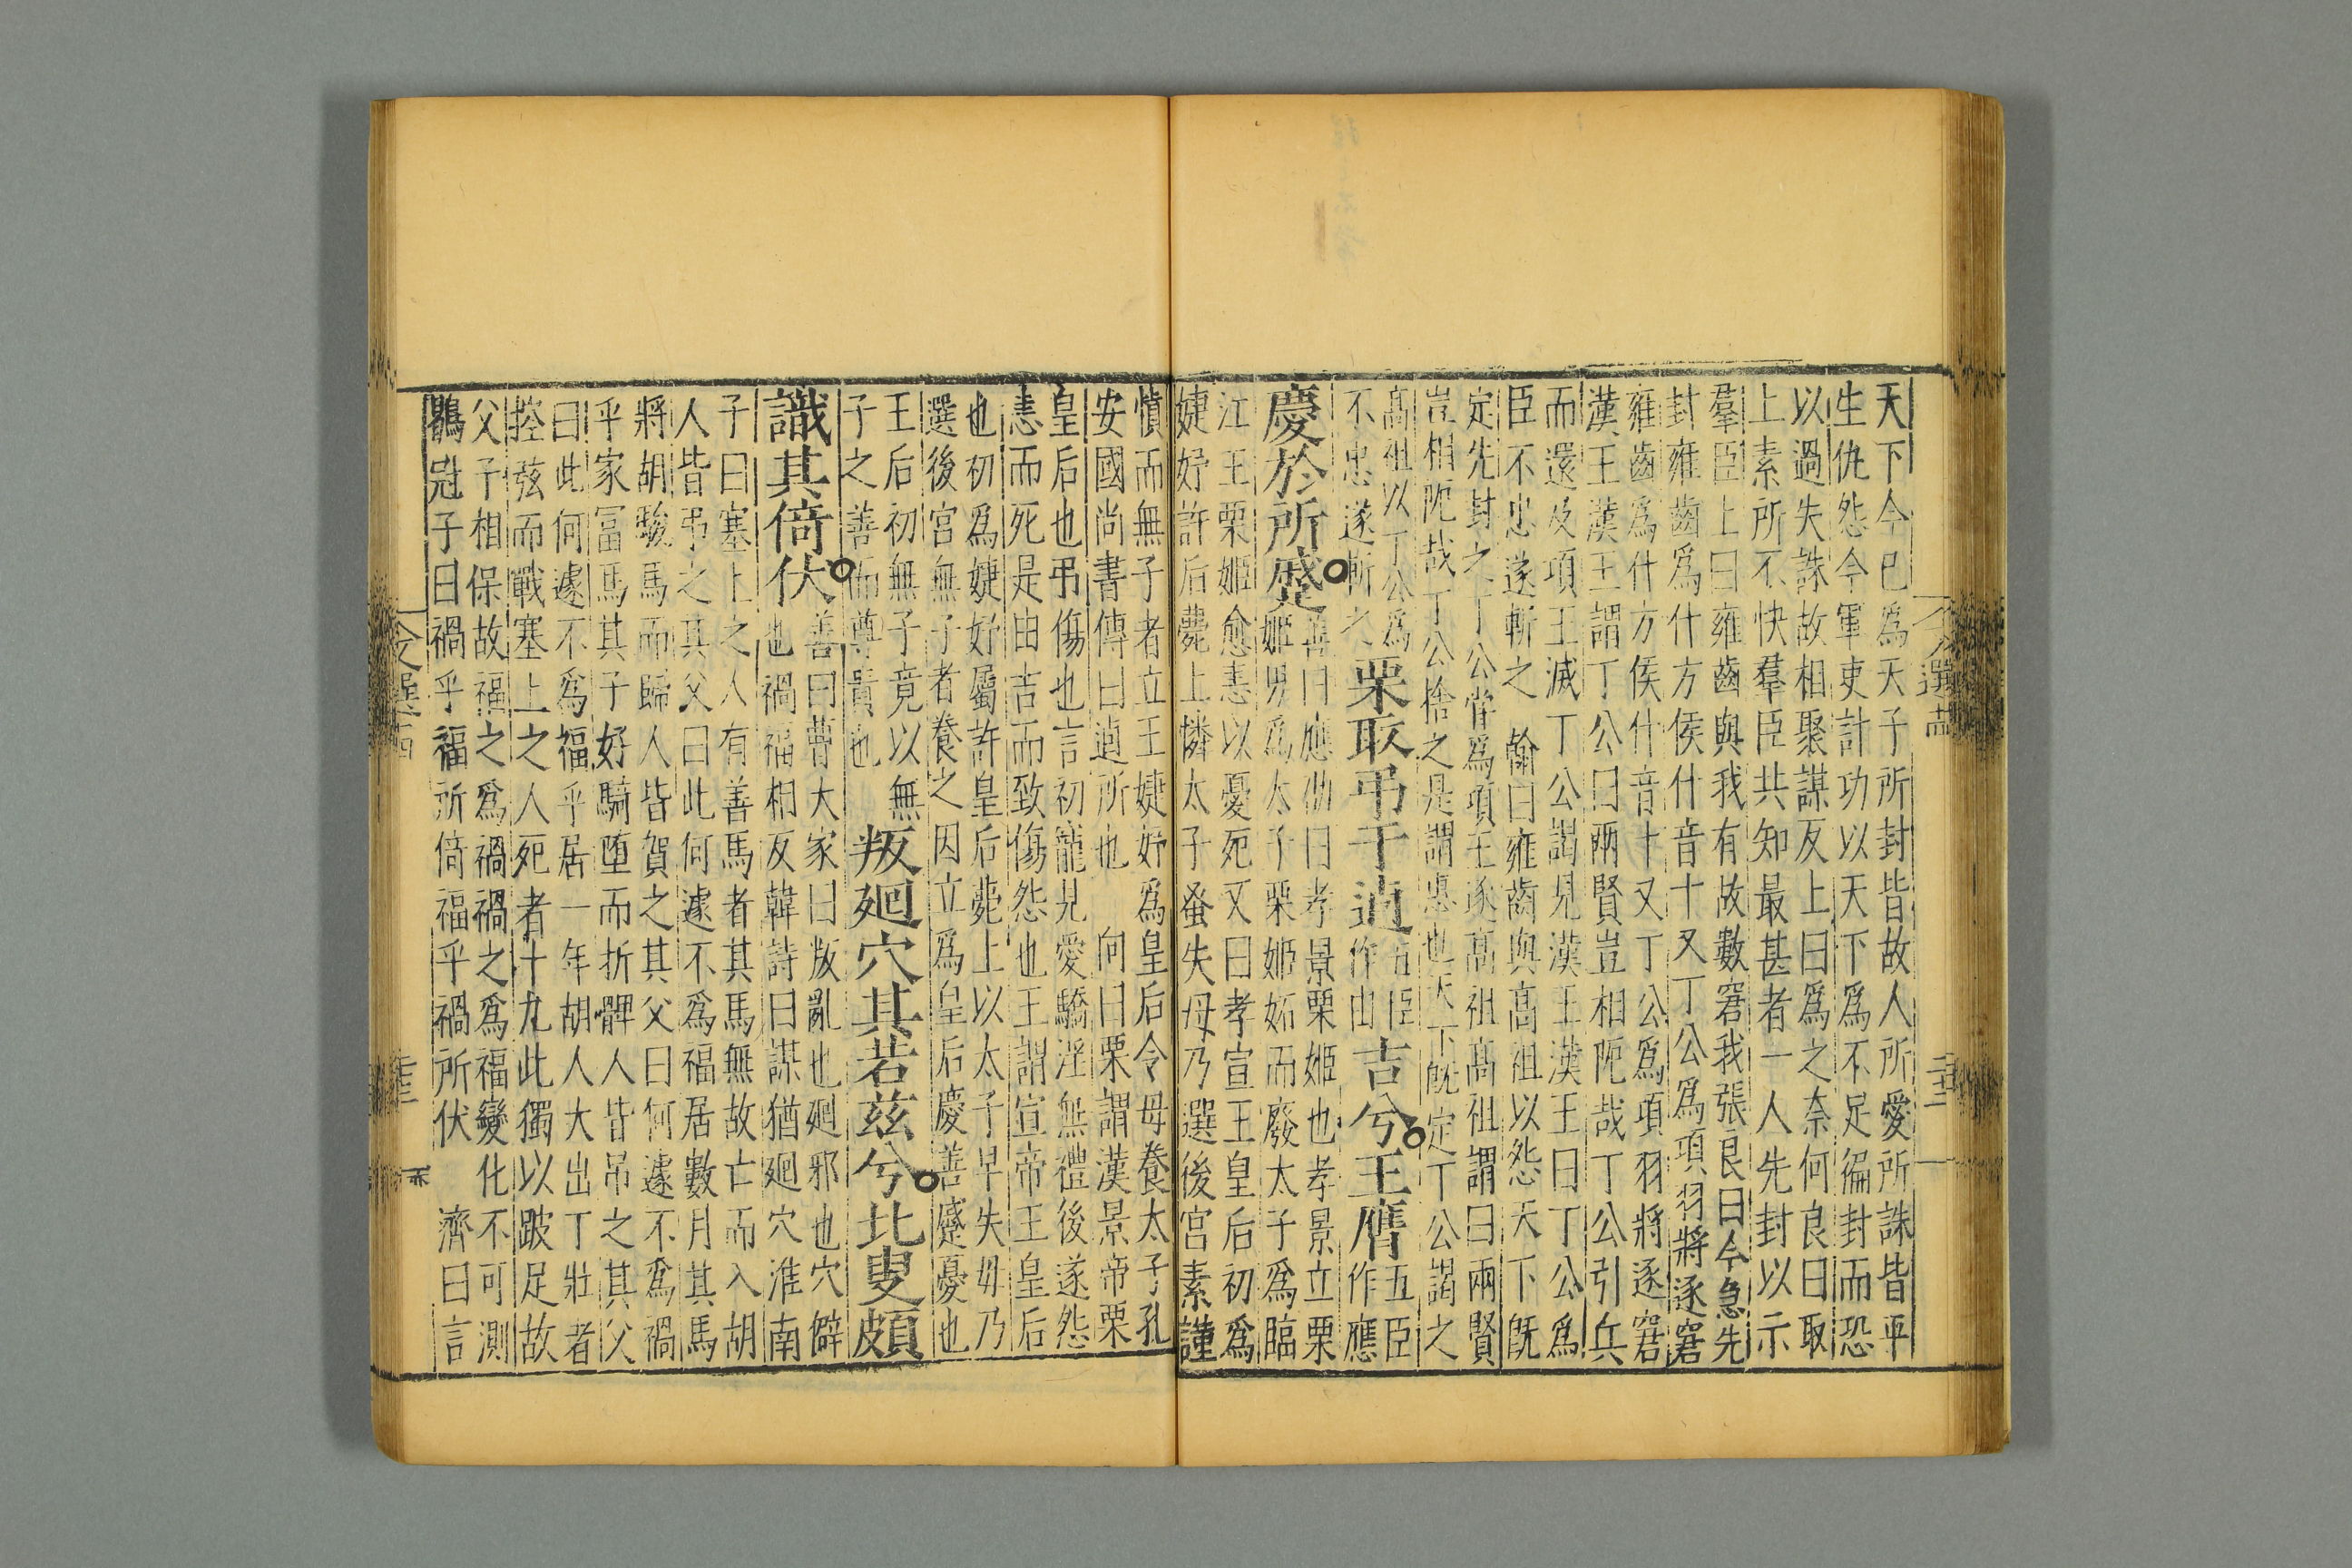 天下今已爲天子所封皆故人所愛所誅皆平
生仇怨今軍吏計功以天下爲不足徧封而恐
以過失誅故相聚謀反上曰爲之奈何良曰取
上素所不快羣臣共知最甚者一人先封以示
羣臣上曰雍齒與我有故數窘我張良曰今急先
封雍齒爲什方侯什音十又丁公爲項羽將逐窘
雍齒爲什方侯什音十又丁公爲項羽將逐窘
漢王漢王謂丁公曰兩賢豈相阨哉丁公引兵
而還及項王滅丁公謁見漢王漢王曰丁公爲
臣不忠遂斬之 翰曰雍齒與高祖以怨天下旣
定先封之丁公甞爲項王逐高祖高祖謂曰兩賢
豈相阨哉丁公捨之是謂惠也天下旣定丁公謁之
高祖以丁公爲
不忠遂斬之
栗取弔于逌
五臣
作由
吉兮王膺
五臣
作應
慶於所慼
善曰應劭曰孝景栗姬也孝景立栗
姬男爲太子栗姬妬而廢太子爲臨
江王栗姬愈恚以憂死又曰孝宣王皇后初爲
婕妤許后薨上憐太子蚤失母乃選後宮素謹
愼而無子者立王婕妤爲皇后令母養太子孔
安國尚書傳曰逌所也 向曰栗謂漢景帝栗
皇后也弔傷也言初寵見愛驕淫無禮後遂怨
恚而死是由吉而致傷怨也王謂宣帝王皇后
也初爲婕妤屬許皇后薨上以太子早失母乃
選後宮無子者養之因立爲皇后慶善慼憂也
王后初無子竟以無
子之善而尊貴也
叛廻穴其若茲兮北叟頗
識其倚伏
善曰曹大家曰叛亂也廻邪也穴僻
也禍福相反韓詩曰謀猶廻穴淮南
子曰塞上之人有善馬者其馬無故亡而入胡
人皆弔之其父曰此何遽不爲福居數月其馬
將胡駿馬而歸人皆賀之其父曰何遽不爲禍
乎家冨馬其子好騎墮而折髀人皆吊之其父
曰此何遽不爲福乎居一年胡人大出丁壯者
控弦而戰塞上之人死者十九此獨以跛足故
父子相保故福之爲禍禍之爲福變化不可測
鶡冠子曰禍乎福所倚福乎禍所伏 濟曰言